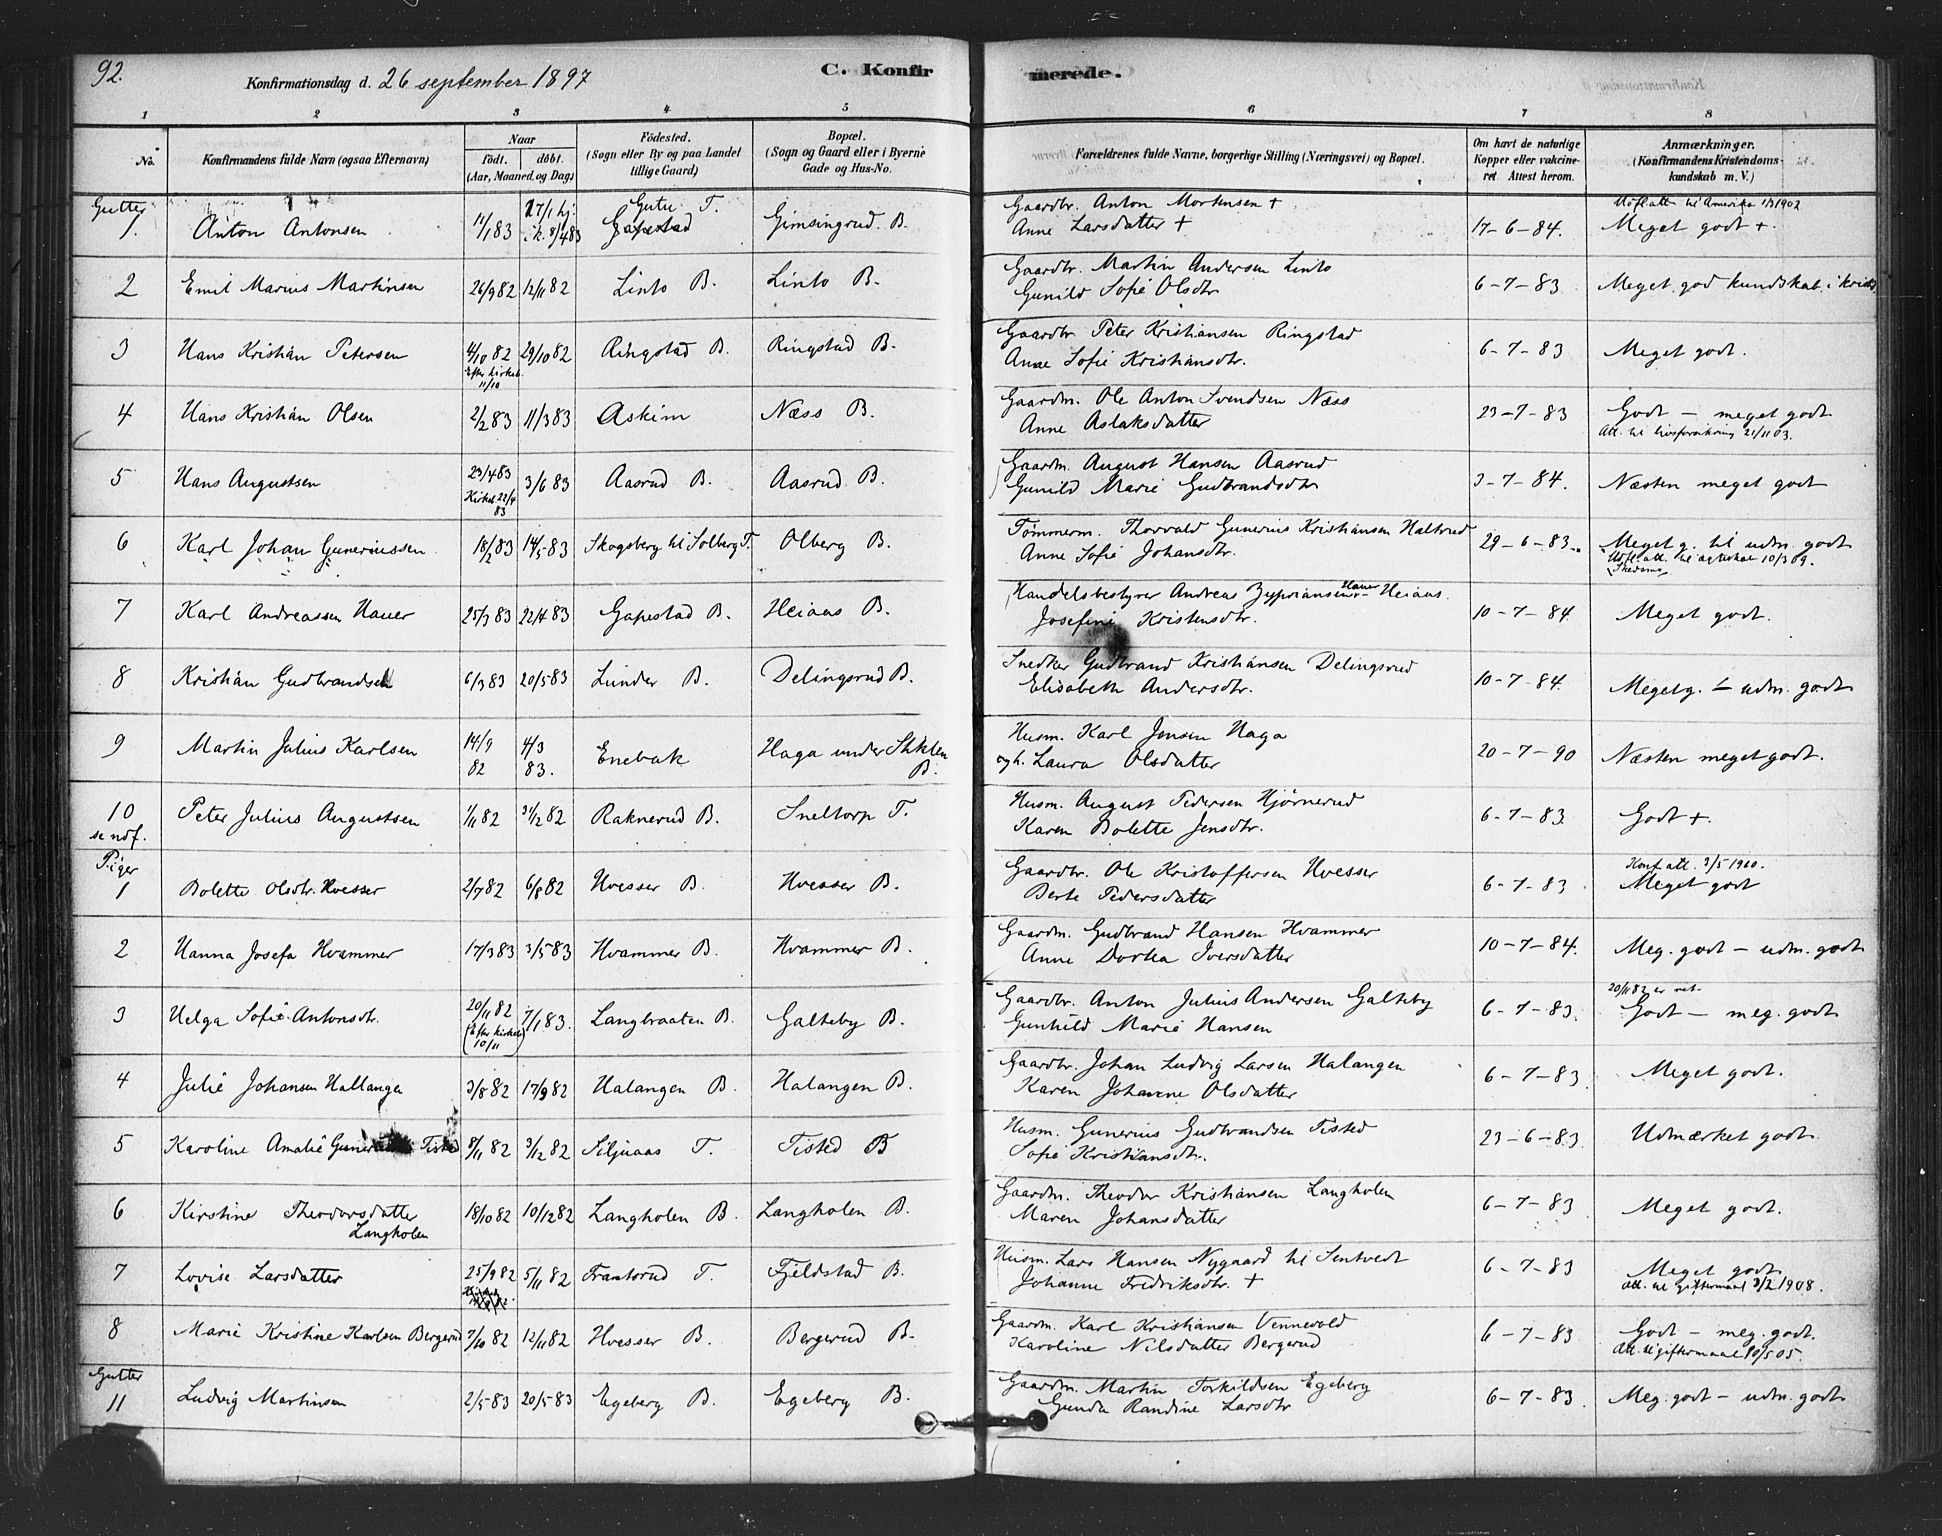 92.
Konfirmationsdag d. 26 september 1897
C. Konfirmerede.
1 2 3 4 5 6 7 8
No. | Konfirmandens fulde Navn (ogsaa Efternavn) | Naar födt. döbt. (Aar, Maaned og Dag) | Födested. (Sogn eller By og paa Landet tillige Gaard) | Bopæl. (Sogn og Gaard eller i Byerne Gade og Hus-No. | Forældrenes fulde Navne, borgerlige Stilling (Næringsvei) og Bopæl. | Om havt de naturlige Kopper eller vakcineret. Attest herom. | Anmærkninger. (Konfirmandens Kristendomskundskab m. V.)
Gutter
1 Anton Antonsen 11/1 83 27/1 hj. i k. 8/4 83 Gutu T. Gapestad Gimsingrud B. Gaardbr. Anton Mortensen + Anne Larsdatter + 17-6-84. Udfl.att. til Amerika 1/3 1902 Meget godt +.
2 Emil Marius Martinsen 26/9 82 12/11 82 Linto B. Linto B. Gaardbr. Martin Andersen Linto Gunild Sofie Olsdtr 6-7-83 Meget god kundskab i krist.
3 Hans Kristian Petersen 4/10 82 Efter kirkeb. 11/10 29/10 82 Ringstad B. Ringstad B. Gaardbr. Peter Kristiansen Ringstad Anne Sofie Kristiansdtr. 6-7-83 Meget godt.
4 Hans Kristian Olsen 2/2 83 11/3 83 Askim Næss B. Gaardm. Ole Anton Svendsen Næss Anne Aslaksdatter 23-7-83 Godt - meget godt Att. til livsforsikring 21/11 03.
5 Hans Augustsen 23/4 83 Kirkeb. 22/4 83 3/6 83 Aasrud B. Aasrud B. Gaardm. August Hansen Aasrud Gunild Marie Gudbrandsdtr 3-7-84. Næsten meget godt
6 Karl Johan Gunerinssen 18/2 83 14/5 83 Skogsberg til Solberg T. Olberg B. Tømmerm. Thorvald Gunerius Kristiansen Haltrud Anne Sofie Johansdtr. 29-6-83. Meget g. til udm. godt Udfl.att. til ægteskab 10/3 09. Skedsmo
7 Karl Andreassen Hauer 25/3 83 22/4 83 Gapestad B. Heiaas B. Handelsbestyrer Andreas Zypriansen Hauer Heiaas. Josefine Kristensdtr. 10-7-84 Meget godt.
8 Kristian Gudbrandsen 6/3 83 20/5 83 Lunder B. Delingsrud B. Snedker Gudbrand Kristiansen Delingsrud Elisabeth Andersdtr. 10-7-84. Meget g. - udm. godt
9 Martin Julius Karlsen 14/9 82 4/3 83. Enebak Haga under Skiklen B. Husm. Karl Jensen Haga og h. Laura Olsdatter 20-7-90 Næsten meget godt.
10 se ndf. Peter Julius Augustsen 1/11 82 31/12 82 Raknerud B. Sneltorp T. Husm. August Pedersen Hjørnerud Karen Bolette Jensdtr. 6-7-83. Godt +.
Piger
1 Bolette Olsdtr. Hvesser 2/7 82 6/8 82 Hvesser B. Hvesser B. Gaardbr. Ole Kristoffersen Hvesser Berte Pedersdatter 6-7-83 Konf.att. 3/5 1960. Meget godt
2 Hanna Josefa Hvammer 17/3 83 3/5 83 Hvammer B. Hvammer B. Gaardm. Gudbrand Hansen Hvammer Anne Dortea Iversdatter 10-7-84. Meg. godt - udm. godt
3 Helga Sofie Antonsdtr. 20/11 82 (Efter kirkeb. 10/11) 7/1 83. Langbraaten B. Galteby B. Gaardbr. Anton Julius Andersen Galteby Gunhild Marie Hansen 6-7-83. 20/11 82 er ret. Godt - meg. godt
4 Julie Johansen Hallangen 3/8 82 17/9 82 Halangen B. Halangen B. Gaardbr. Johan Ludvig Larsen Halangen Karen Johanne Olsdatter 6-7-83. Meget godt.
5 Karoline Amalie Tisted 8/11 82 3/12 82 Siljuaas T. Tisted B Husm. Gunerius Gudbrandsen Tisted Sofie Kristiansdtr. 23-6-83. Udmærket godt.
6 Kirstine Theodorsdatter Langholen 18/10 82 10/12 82 Langholen B. Langholen B. Gaardm. Theodor Kristiansen Langholen Maren Johansdatter 6-7-83 Meget godt.
7 Lovise Larsdatter 25/9 82 5/11 82 Frantsrud T. Fjeldstad B. Husm. Lars Hansen Nygaard til Sentvedt Johanne Fredriksdtr. + 6-7-83 Meget godt Att. til giftermaal 3/2 1908.
8 Marie Kristine Karlsen Bergerud 7/10 82 12/11 82 Hvesser B. Bergerud B. Gaardm. Karl Kristiansen Vennevold Karoline Nilsdatter Bergerud 6-7-83 Godt - meg. godt. Att. til giftermaal 10/5 05.
Gutter
11 Ludvig Martinsen 2/5 83 20/5 83 Egeberg B. Egeberg B. Gaardm. Martin Torkildsen Egeberg Gunda Randine Larsdtr 6-7-83. Meg. godt - udm. godt